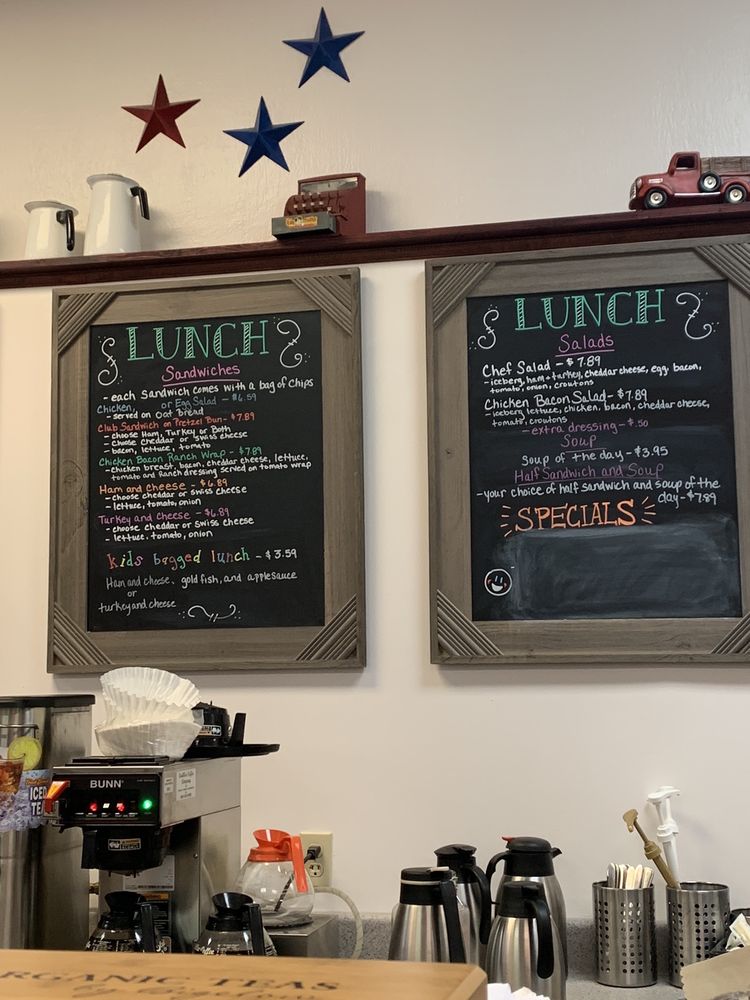 LUNCH
Sandwiches
- each sandwich comes with a bag of chips
Chicken, or Egg Salad - $6.59
- served on Oat bread
Club Sandwich on Pretzel Bun - $7.89
- choose Ham, Turkey or Both
- Choose cheddar or Swiss cheese
- bacon, lettuce, tomato
Chicken Bacon Ranch Wrap - $7.89
- chicken breast, bacon, cheddar cheese, lettuce,
tomato and ranch dressing served on tomato wrap
Ham and cheese - $6.89
- choose cheddar or swiss cheese
- lettuce, tomato, onion
Turkey and cheese - $6.89
- choose cheddar or Swiss cheese
- lettuce, tomato, onion
kids bagged lunch - $3.59
Ham and cheese, gold fish, and applesauce
or
turkey and cheese
LUNCH
Salads
Chef Salad - $7.89
- iceberg, ham + turkey, cheddar cheese, egg, bacon,
tomato, onion, croutons
Chicken Bacon Salad - $7.89
- iceberg lettuce, chicken, bacon, cheddar cheese,
tomato, croutons
- extra dressing - $.50
Soup
soup of the day - $3.95
Half Sandwich and Soup
- your choice of half sandwich and soup of the
day - $7.89
SPECIALS
BUNN
ICED
TEA
RGANIC TEAS
by